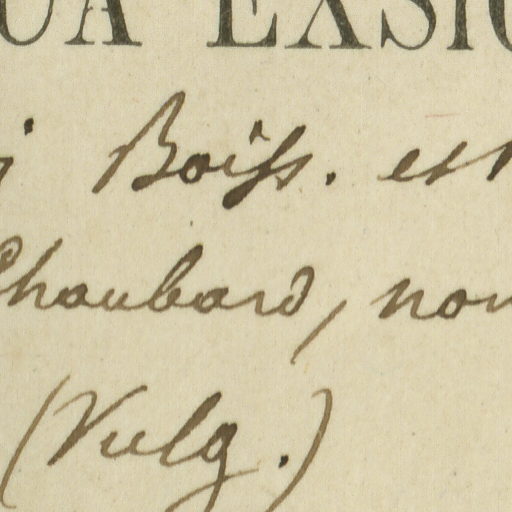 UA EXSIC
i Boiss. et
Chaubard, non
(Vulg.)